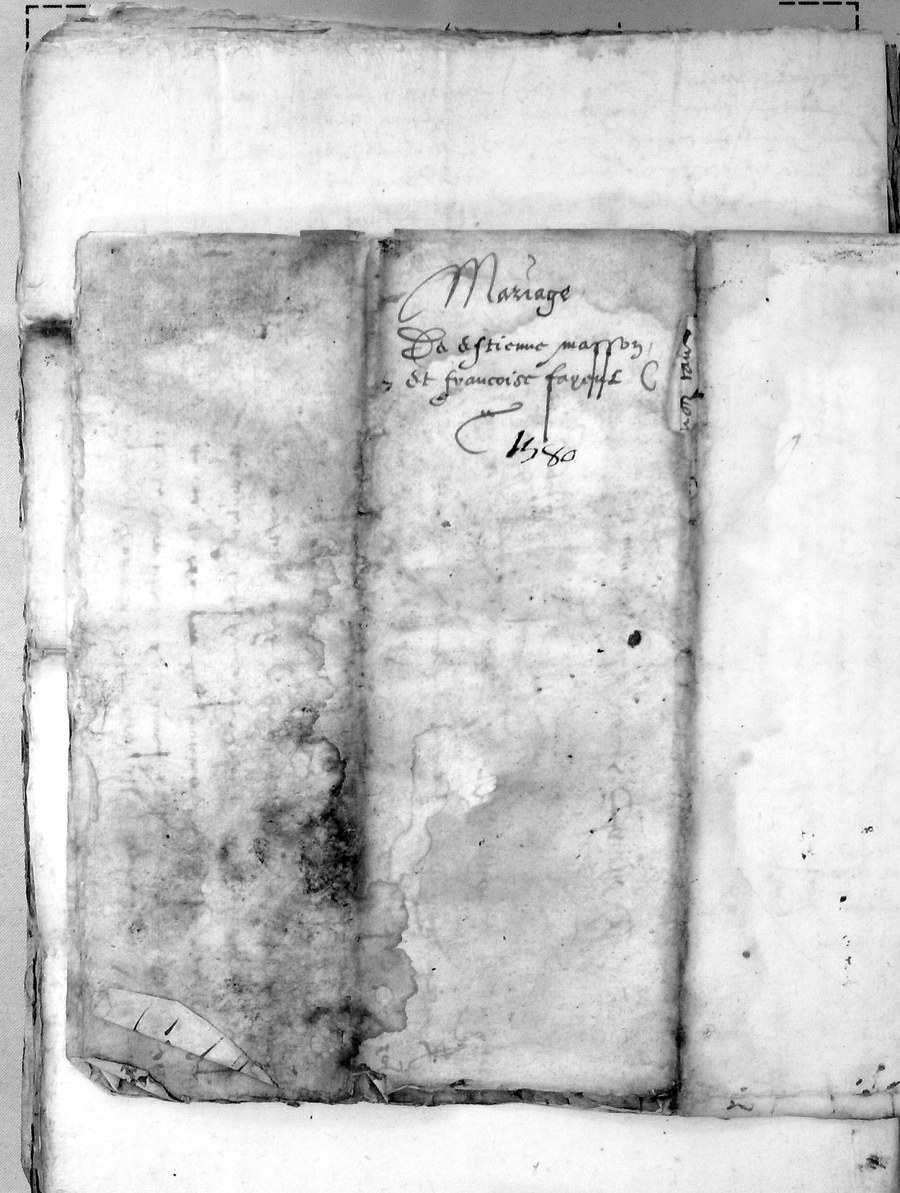 Mariage
De estienne masson
et francoise fayeulx
1580